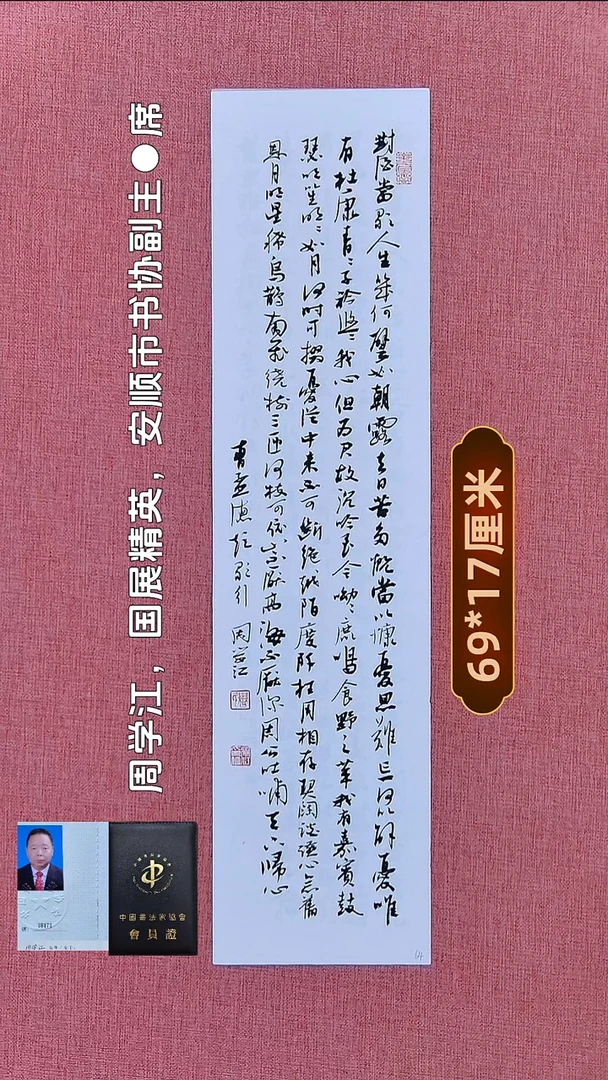 周学江，国展精英，安顺市书协副主●席
對酒當歌人生幾何譬如朝露去日苦多慨當以慷憂思難忘何以解憂唯
有杜康青〻子衿悠〻我心但为君故沉吟至今呦〻鹿鳴食野之苹我有嘉賓鼓
瑟吹笙明〻如月何时可掇憂從中来不可斷絕越陌度阡枉用相存契闊談讌心念舊
恩月明星稀烏鵲南飛繞樹三匝何枝可依山不厭高海不厭深周公吐哺天下歸心
曹孟德短歌行 周学江
69*17厘米
中國書法家協會
會員證